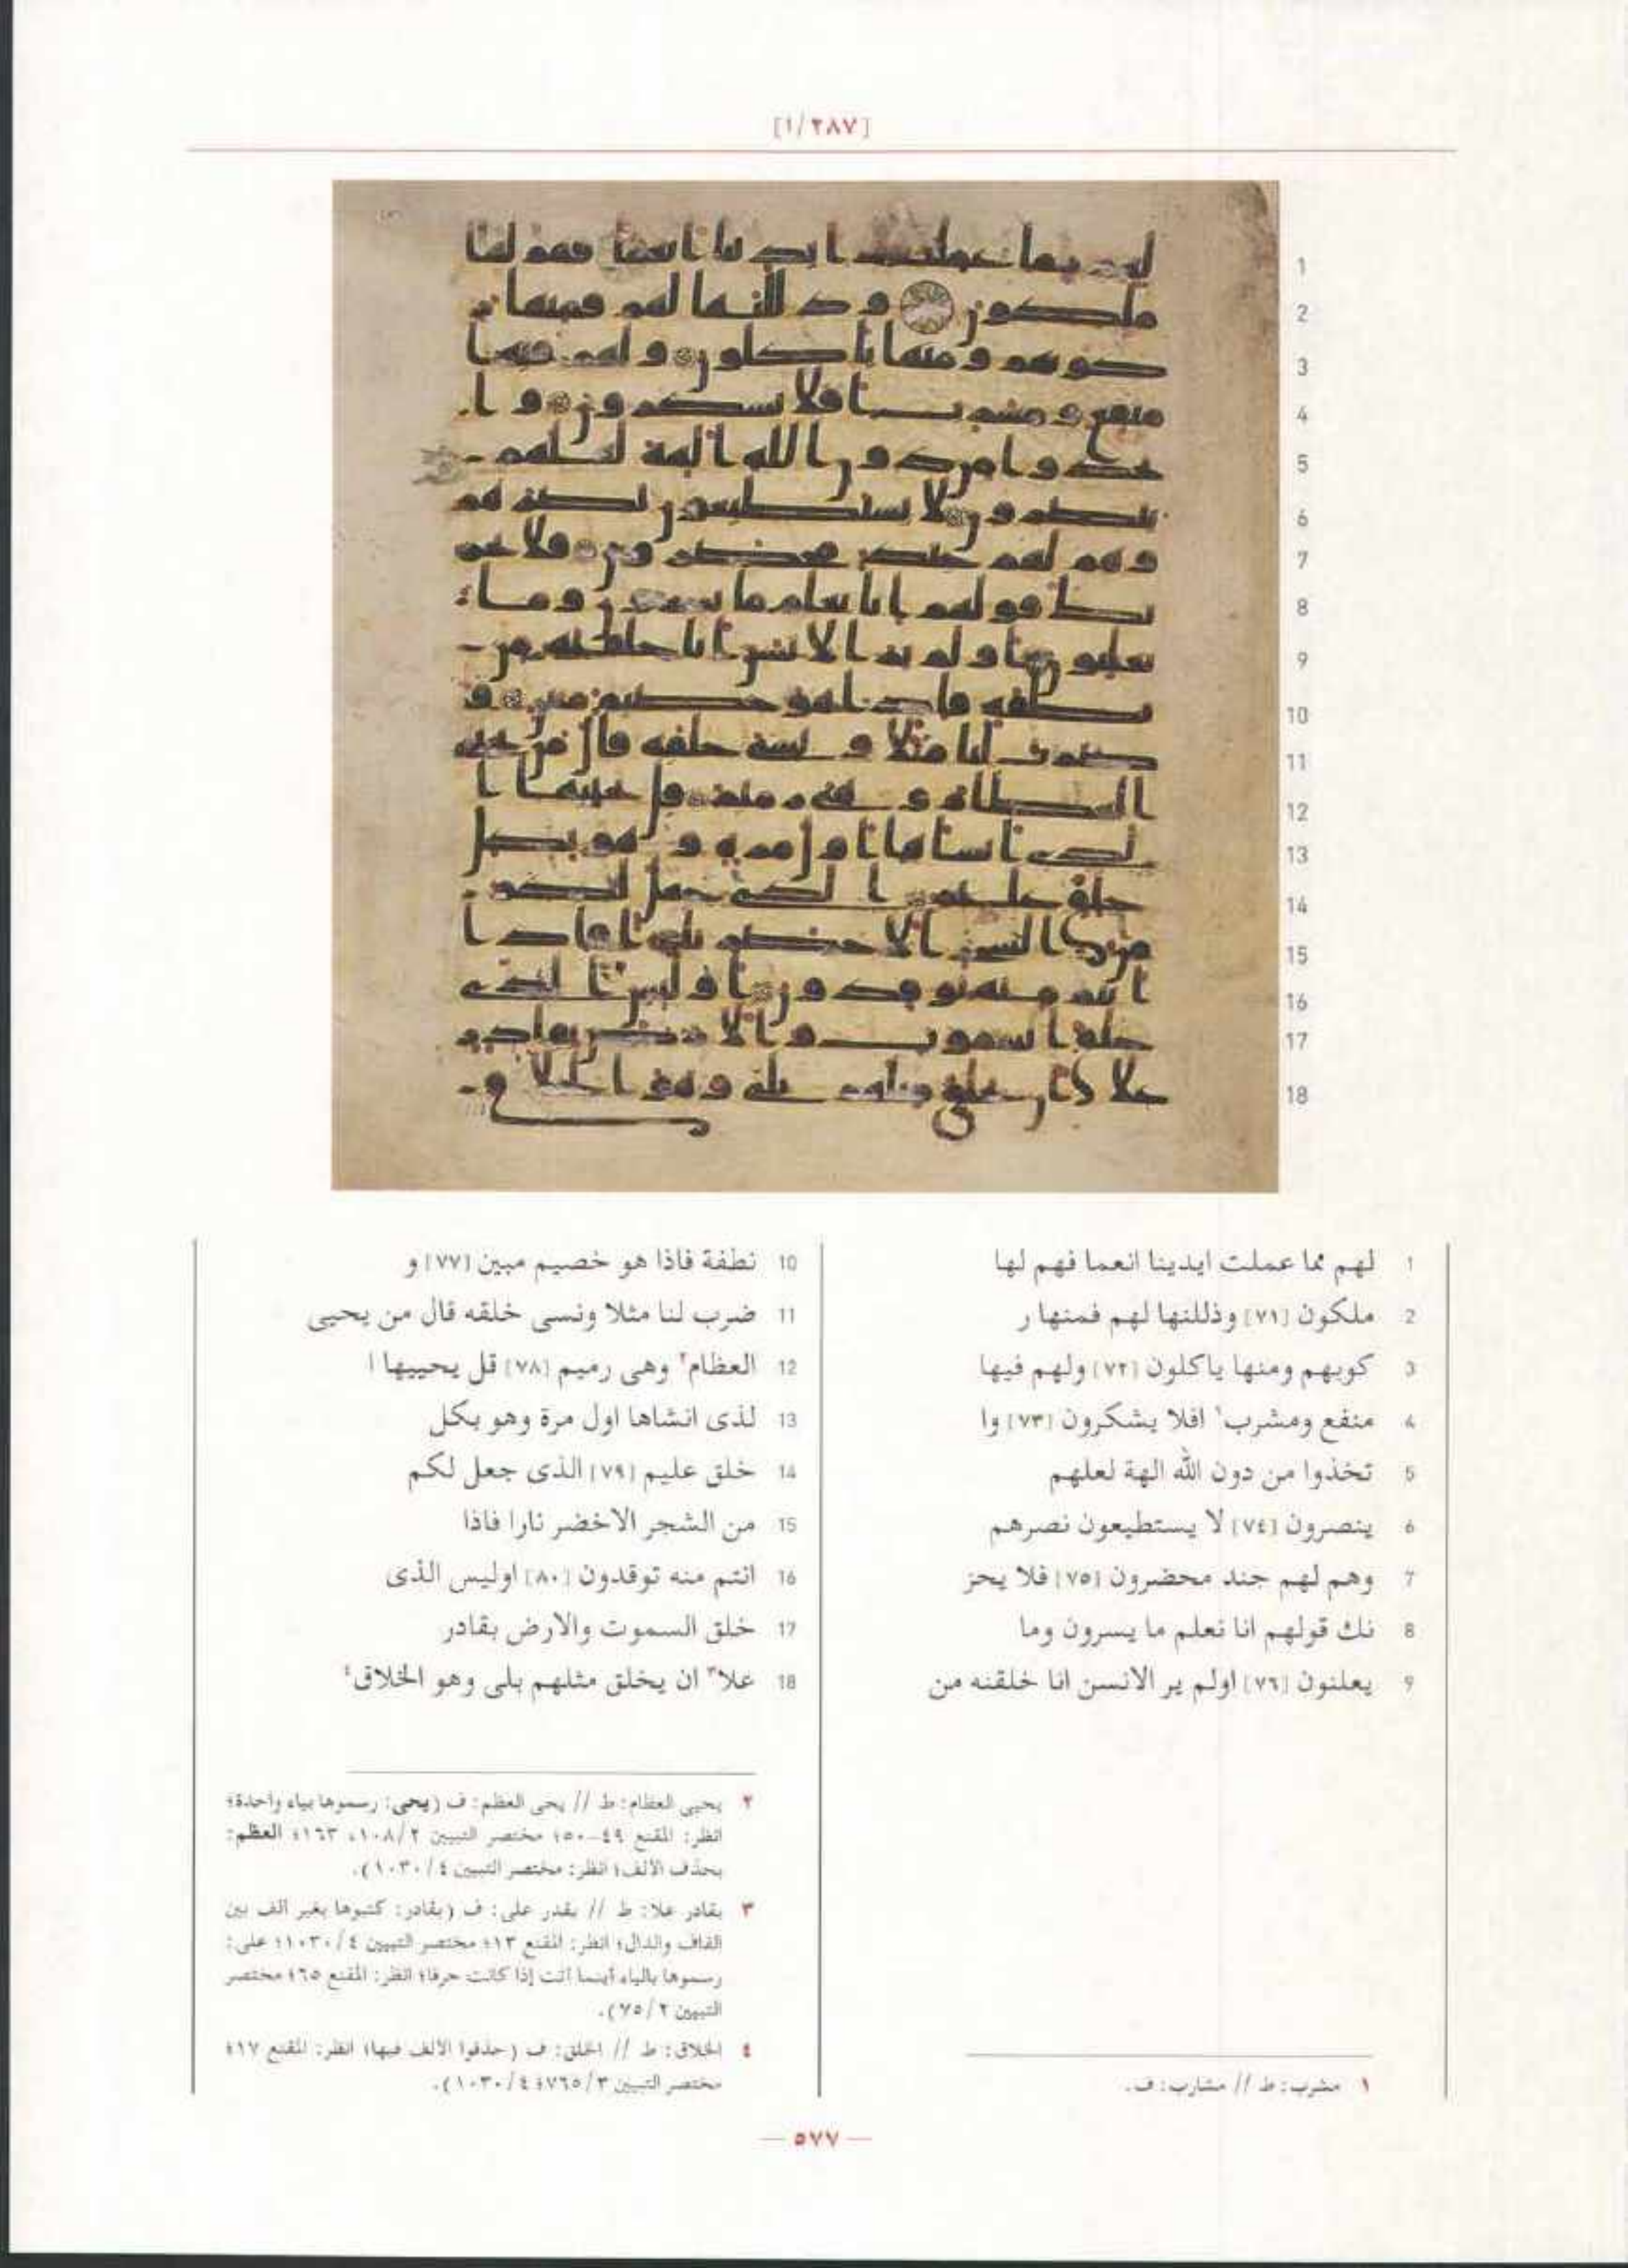 [١/٢٨٧]
1 لهم مما عملت ايدينا انعما فهم لها
2 ملكون [٧١] وذللنها لهم فمنها ر
3 كوبهم ومنها ياكلون [٧٢] ولهم فيها
4 منفع ومشرب١ افلا يشكرون [٧٣] وا
5 تخذوا من دون الله الهة لعلهم
6 ينصرون [٧٤] لا يستطيعون نصرهم
7 وهم لهم جند محضرون [٧٥] فلا يحز
8 نك قولهم انا نعلم ما يسرون وما
9 يعلنون [٧٦] اولم ير الانسن انا خلقنه من
١ مشرب: ط // مشارب: ف.
10 نطفة فاذا هو خصيم مبين [٧٧] و
11 ضرب لنا مثلا ونسى خلقه قال من يحيى
12 العظام٢ وهى رميم [٧٨] قل يحييها ا
13 لذى انشاها اول مرة وهو بكل
14 خلق عليم [٧٩] الذى جعل لكم
15 من الشجر الاخضر نارا فاذا
16 انتم منه توقدون [٨٠] اوليس الذى
17 خلق السموت والارض بقادر
18 علا٣ ان يخلق مثلهم بلى وهو الخلاق٤
٢ يحيى العظام: ط // يحى العظم: ف (يحى: رسموها بياء واحدة؛
انظر: المقنع ٤٩-٥٠؛ مختصر التبيين ٢/١٠٨، ١٦٣؛ العظم:
بحذف الالف؛ انظر: مختصر التبيين ٤/١٠٣٠).
٣ بقادر علا: ط // بقدر على: ف (بقادر: كتبوها بغير الف بين
القاف والدال؛ انظر: المقنع ١٣؛ مختصر التبيين ٤/١٠٣٠؛ على:
رسموها بالياء أينما أتت إذا كانت حرفا؛ انظر: المقنع ٦٥؛ مختصر
التبيين ٢/٧٥).
٤ الخلاق: ط // الخلق: ف (حذفوا الألف فيها؛ انظر: المقنع ١٧؛
مختصر التبيين ٣/٧٦٥؛ ٤/١٠٣٠).
— ٥٧٧ —